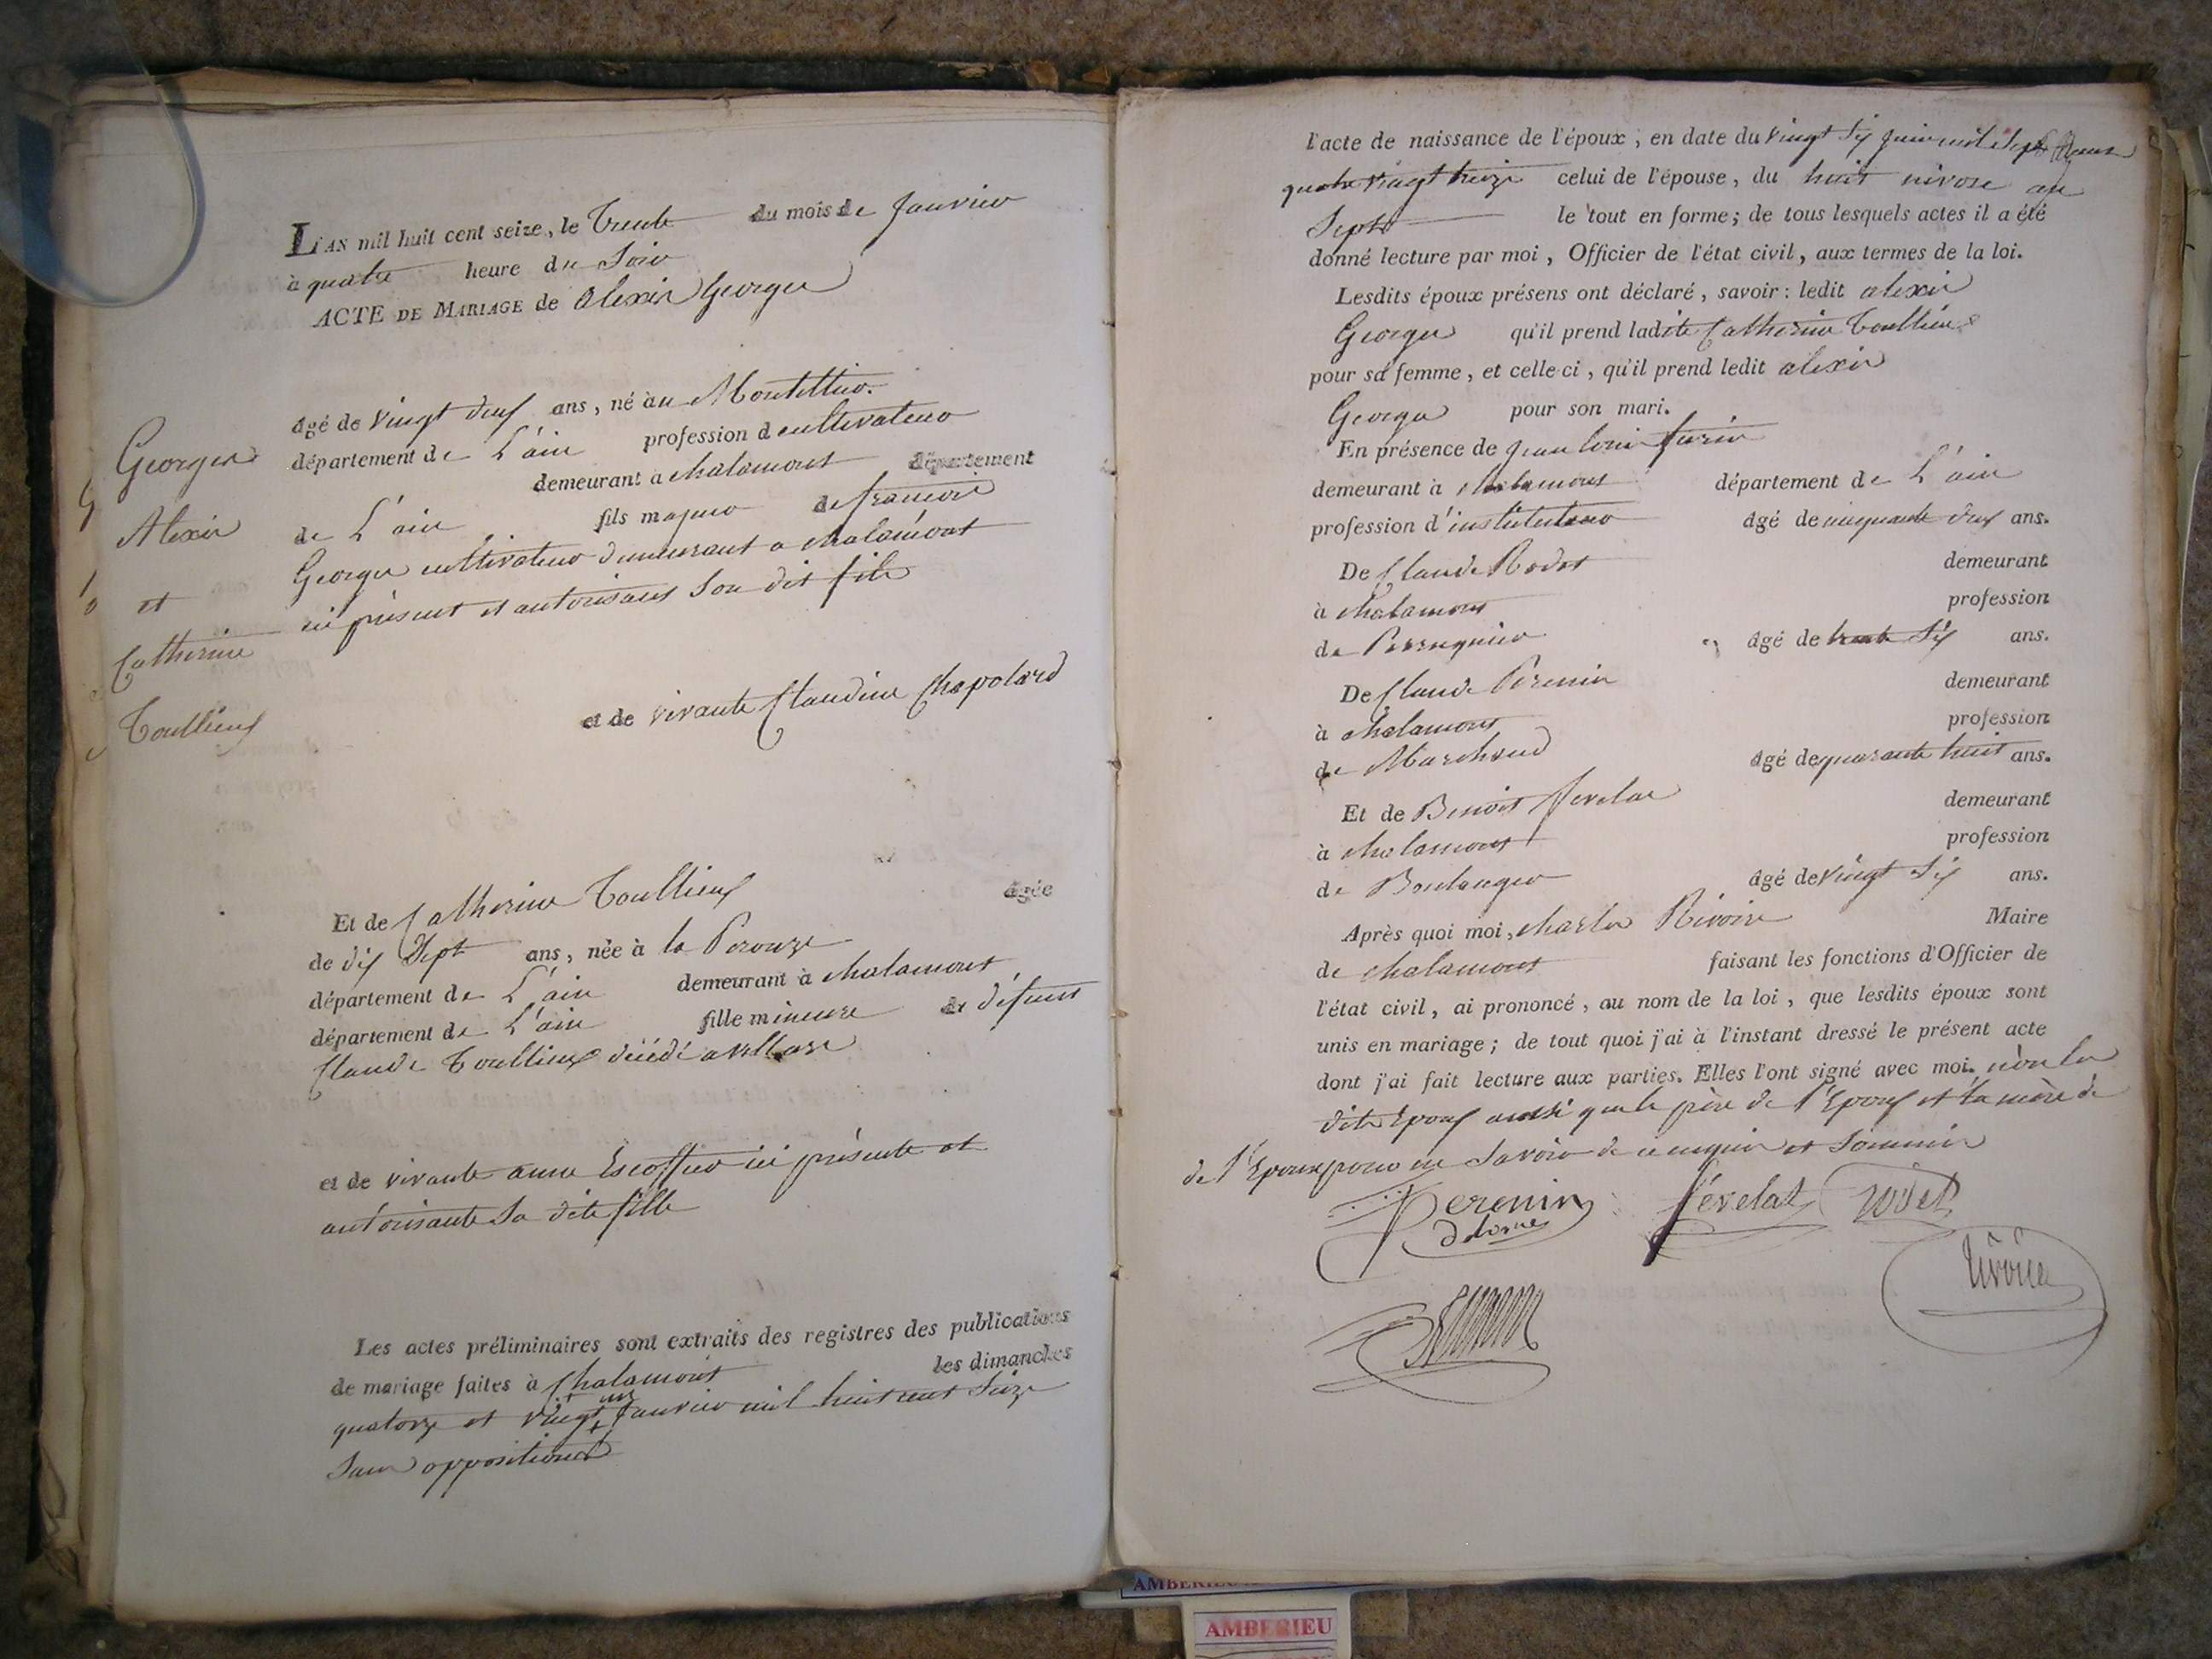 L'AN mil huit cent seize, le Trente du mois de Janvier
à quatre heure du Soir
ACTE DE MARIAGE de Alexis Georges
âgé de vingt deux ans, né au Montellier
département de L'ain profession d cultivateur
demeurant à chalamont département
de L'ain fils majeur de francois
Georges cultivateur demeurant a chalamont
ici présent et autorisant Son dit fils
et de vivante Claudine Chapolard
Georges
Alexis
et
Catherine
Toullieux
Et de Catherine Toullieux âgée
de dix Sept ans, née à la Perouze
département de L'ain demeurant à chalamont
département de L'ain fille mineure de défunt
Claude Toullieux décédé a villars
et de vivante anne Escoffier ici présente et
autorisante Sa dite fille
Les actes préliminaires sont extraits des registres des publications
de mariage faites à Chalamont les dimanches
quatorze et vingt un Janvier mil huit cent Seize
Sans oppositions
l'acte de naissance de l'époux, en date du vingt Six Juin mil Sept Cent
quatre vingt treize celui de l'épouse, du huit nivose an
Sept le tout en forme; de tous lesquels actes il a été
donné lecture par moi, Officier de l'état civil, aux termes de la loi.
Lesdits époux présens ont déclaré, savoir: ledit alexis
Georges qu'il prend ladite Catherine Toullieux
pour sa femme, et celle ci, qu'il prend ledit alexis
Georges pour son mari.
En présence de Jean Louis
demeurant à chalamont département de L'ain
profession d'instituteur âgé de cinquante deux ans.
De Claude Rodet demeurant
à chalamont profession
de Perruquier âgé de trente Six ans.
De Claude Perenin demeurant
à chalamont profession
de Marchand âgé de quarante huit ans.
Et de Benoit févelat demeurant
à chalamont profession
de Boulanger âgé de vingt Six ans.
Après quoi moi, charles Rivoire Maire
de chalamont faisant les fonctions d'Officier de
l'état civil, ai prononcé, au nom de la loi, que lesdits époux sont
unis en mariage; de tout quoi j'ai à l'instant dressé le présent acte
dont j'ai fait lecture aux parties. Elles l'ont signé avec moi. non les
dits Epoux aussi que le père de l'Epoux et la mère de
de l'Epouse pour ne Savoir de ce enquis et Sommés
Perenin févelat rodet
delorme
rivoire
AMBERIEU